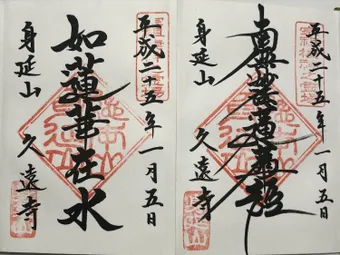 平成二十五年一月五日
南無妙法蓮華経
身延山
久遠寺
平成二十五年一月五日
如蓮華在水
身延山
久遠寺